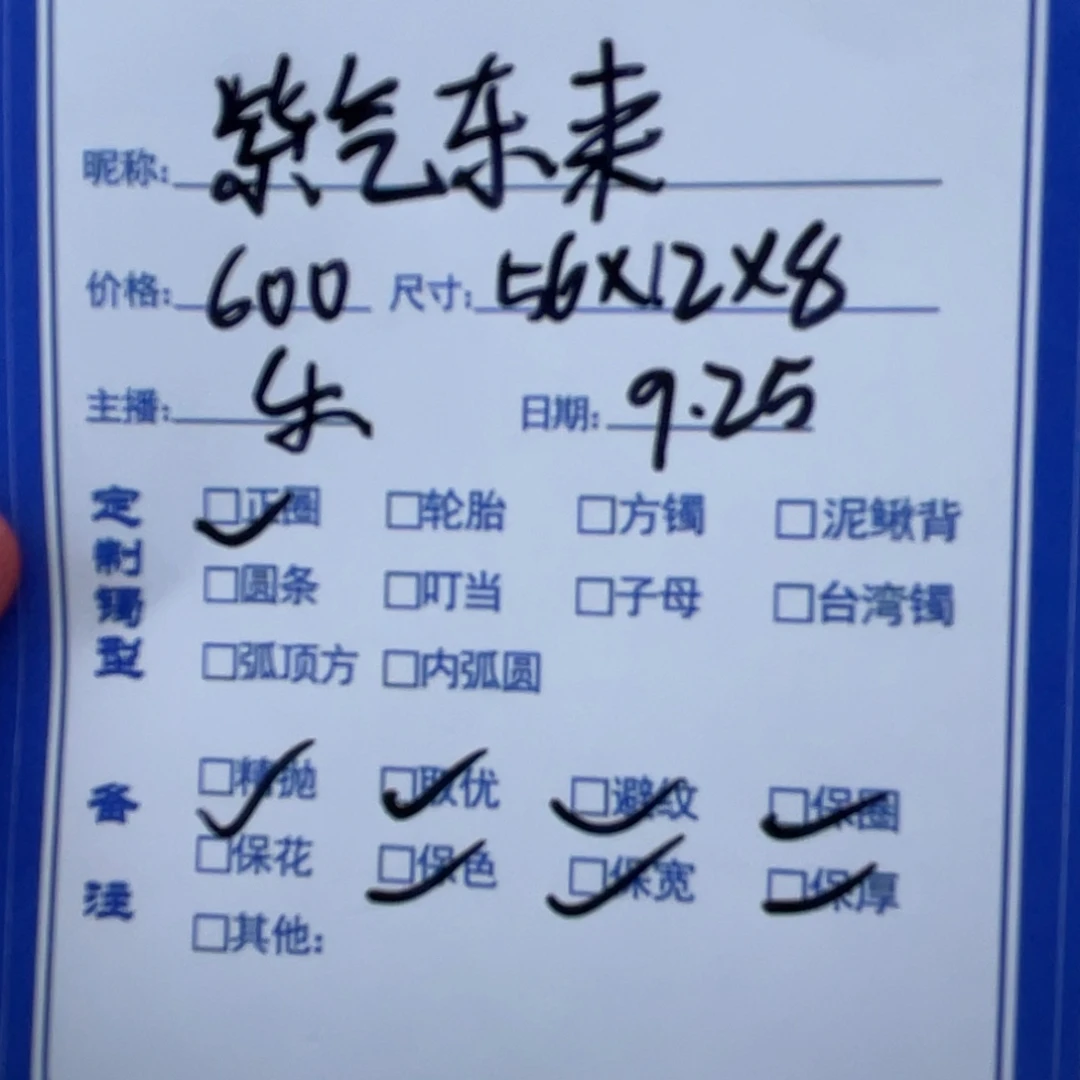 昵称: 紫气东来
价格: 600 尺寸: 56×12×8
主播: 乐 日期: 9.25
定制镯型
□正圈 □轮胎 □方镯 □泥鳅背
□圆条 □叮当 □子母 □台湾镯
□弧顶方 □内弧圆
备注
□精抛 □取优 □避纹 □保圈
□保花 □保色 □保宽 □保厚
□其他: